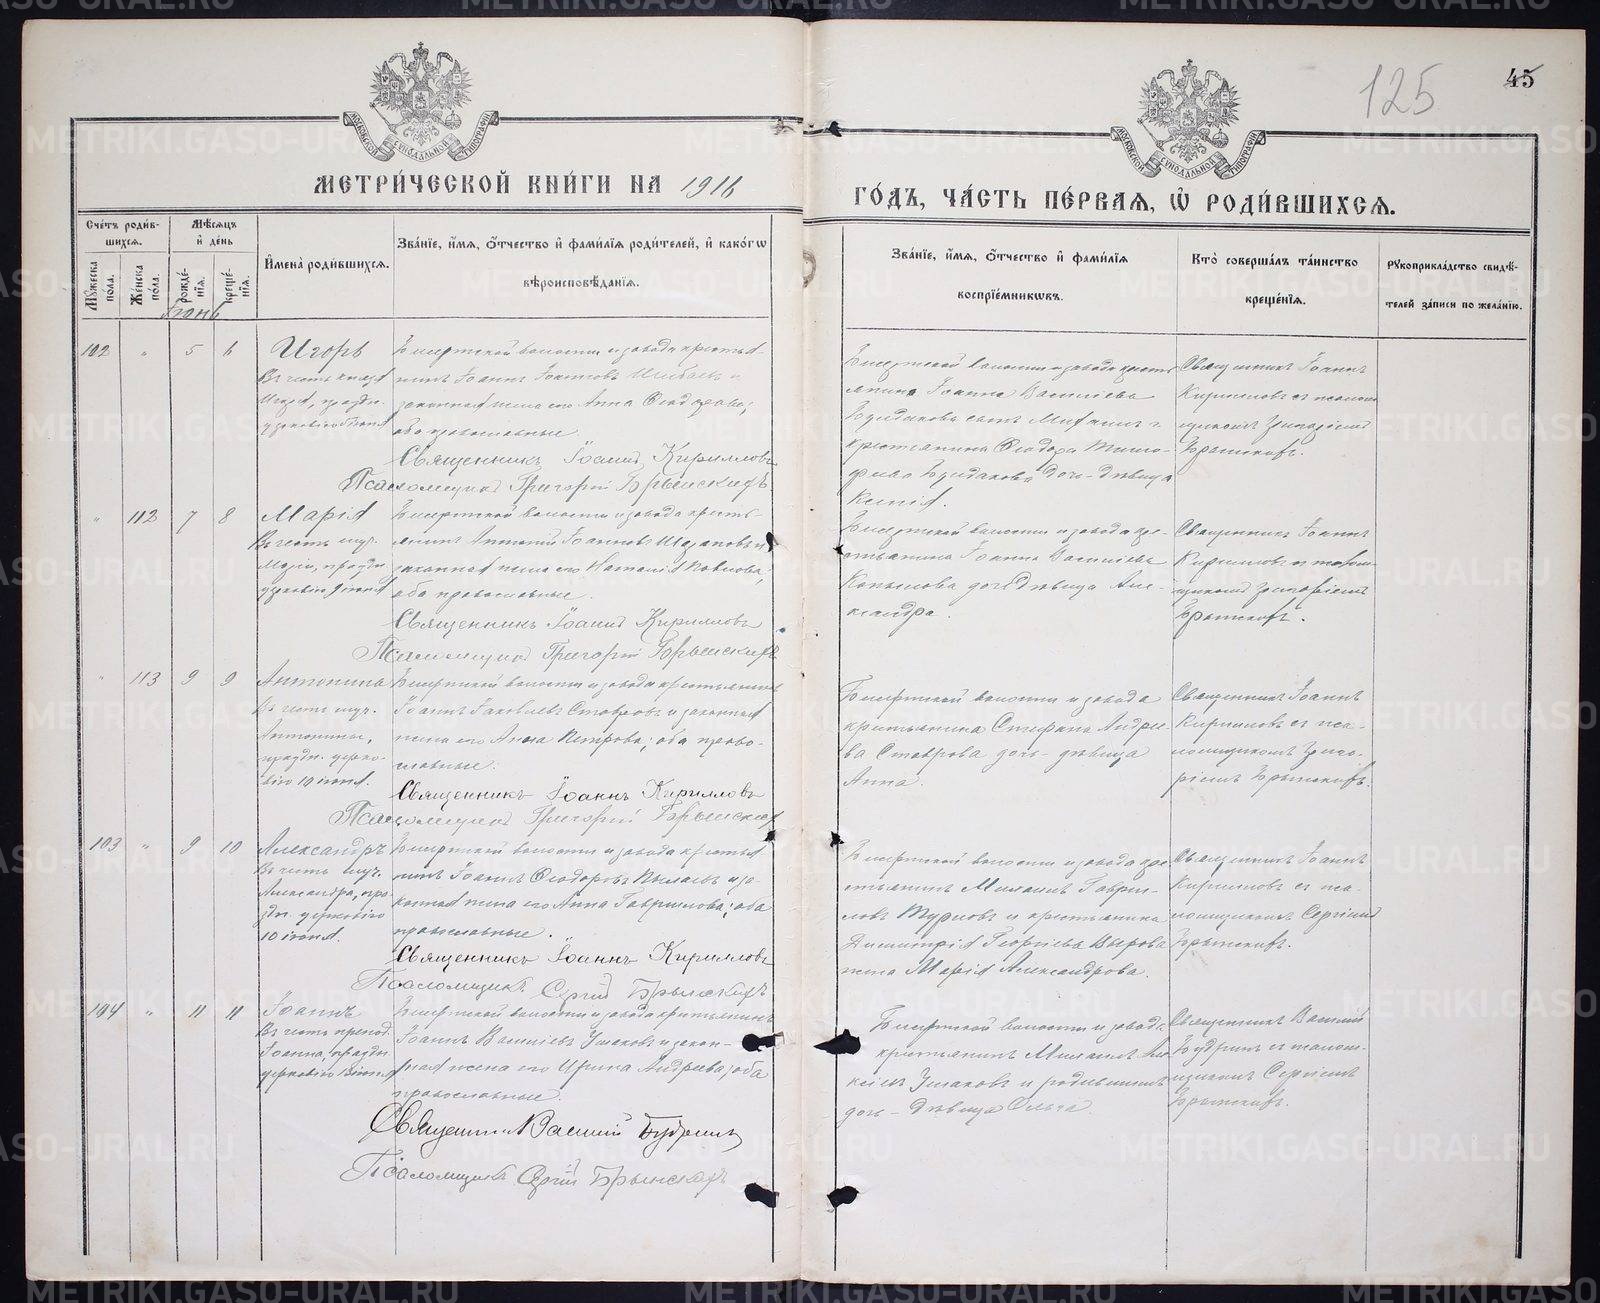 125
45
МОСКОВСКОЙ СѴНОДАЛЬНОЙ ТИПОГРАФІИ
МОСКОВСКОЙ СѴНОДАЛЬНОЙ ТИПОГРАФІИ
МЕТРИ́ЧЕСКОЙ КНИ́ГИ НА 1916
ГО́ДЪ, ЧА́СТЬ ПЕ́РВАЯ, Ѡ҆ РОДИ́ВШИХСЯ.
Сче́тъ роди́в-
шихся.
Мѣ́сяцъ
и҆ де́нь
Му́жеска
по́ла.
Же́нска
по́ла.
рожде́-
нїя.
креще́-
нїя.
И҆мена̀ роди́вшихся.
Зва́нїе, и҆́мя, ѻ҆́тчество и҆ фами́лїя роди́телей, и҆ како́гѡ
вѣроисповѣ́данїя.
Зва́нїе, и҆́мя, ѻ҆́тчество и҆ фами́лїя
воспрїе́мникѡвъ.
Кто̀ соверша́лъ та́инство
креще́нїя.
Рꙋкоприкла́дство свидѣ́-
телей за́писи по жела́нїю.
Іюнь
102 " 5 6
Игорь
Въ честь князя
Игоря, праздн.
церковію 5 іюня
Бисертской волости и завода крестья-
нинъ Іоаннъ
законная жена его Анна Ѳеодорова;
оба православные.
Священникъ Іоаннъ Кирилловъ
Псаломщикъ Григорій Брынскихъ
Бисертской волости и завода кресть-
янина Іоанна Васильева
сынъ Михаилъ и
крестьянина Ѳеодора Тимо-
феева дочь-дѣвица
Ксенія.
Священникъ Іоаннъ
Кирилловъ съ псалом-
щикомъ Григоріемъ
Брынскихъ.
" 112 7 8
Марія
Въ честь муч.
Маріи, праздн.
церковію 9 іюня
Бисертской волости и завода кресть-
янинъ Антоній Іоанновъ и
законная жена его Наталія Павлова;
оба православные.
Священникъ Іоаннъ Кирилловъ
Псаломщикъ Григорій Брынскихъ
Бисертской волости и завода кре-
стьянина Іоанна Васильева
Копылова дочь дѣвица Але-
ксандра.
Священникъ Іоаннъ
Кирилловъ съ псалом-
щикомъ Григоріемъ
Брынскихъ.
" 113 9 9
Антонина
Въ честь муч.
Антонины,
праздн. церко-
вію 10 іюня.
Бисертской волости и завода крестьянинъ
Іоаннъ Іаковлевъ Ставровъ и законная
жена его Анна Петрова; оба право-
славные.
Священникъ Іоаннъ Кирилловъ
Псаломщикъ Григорій Брынскихъ
Бисертской волости и завода
крестьянина Стефана Андрее-
ва Ставрова дочь-дѣвица
Анна.
Священникъ Іоаннъ
Кирилловъ съ пса-
ломщикомъ Григо-
ріемъ Брынскихъ.
103 " 9 10
Александръ
Въ честь муч.
Александра, пра-
здн. церковію
10 іюня.
Бисертской волости и завода крестья-
нинъ Іоаннъ Ѳеодоровъ и за-
конная жена его Анна Гаврилова; оба
православные.
Священникъ Іоаннъ Кирилловъ
Псаломщикъ Сергій Брынскихъ
Бисертской волости и завода кре-
стьянинъ Михаилъ Гаврии-
ловъ и крестьянина
Димитрія Георгіева
жена Марія Александрова.
Священникъ Іоаннъ
Кирилловъ съ пса-
ломщикомъ Сергіемъ
Брынскихъ.
104 " 11 11
Іоаннъ
Въ честь препод.
Іоанна, праздн.
церковію іюня
Бисертской волости и завода крестьянинъ
Іоаннъ Васильевъ Ушаковъ и закон-
ная жена его Ирина Андреева; оба
православные.
Священникъ Василій Будринъ
Псаломщикъ Сергій Брынскихъ
Бисертской волости и завода
крестьянинъ Михаилъ Але-
ксіевъ Ушаковъ и
дочь-дѣвица Ольга.
Священникъ Василій
Будринъ съ псалом-
щикомъ Сергіемъ
Брынскихъ.
METRIKI.GASO-URAL.RU